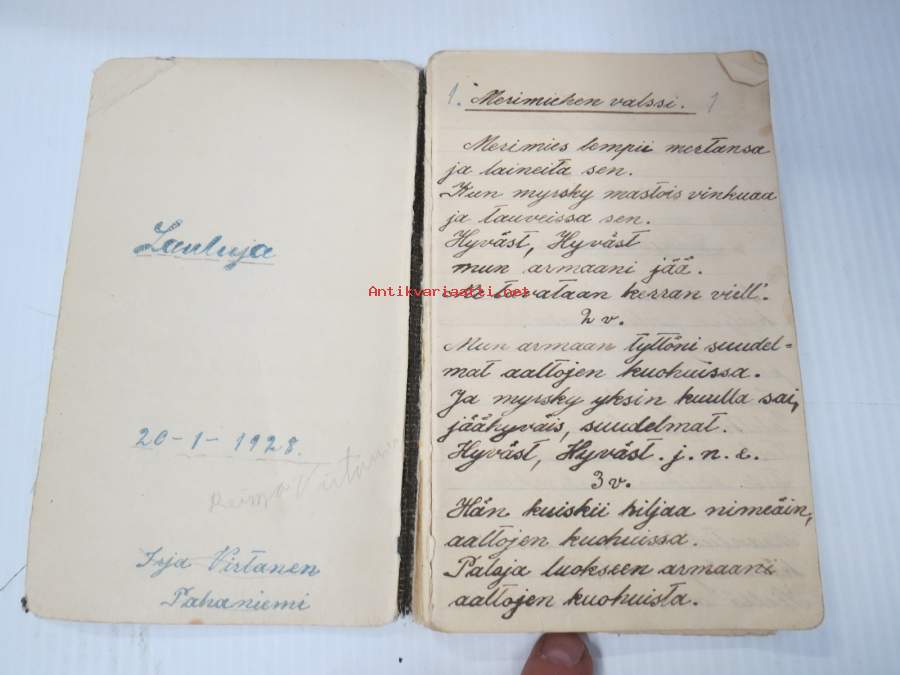 Lauluja
20-1-1928.
Virtanen
Irja Virtanen
Pahaniemi
1. Merimiehen valssi. 1
Merimies lempii mertansa
ja laineita sen.
Kun myrsky mastois vinkuaa
ja tauveissa sen.
Hyväst, Hyväst
mun armaani jää.
tavataan kerran viell'.
2 v.
Mun armaan tyttöni suudel=
mat aaltojen kuohuissa.
Ja myrsky yksin kuulla sai,
jäähyväis, suudelmat.
Hyväst, Hyväst. j.n.e.
3 v.
Hän kuiskii hiljaa nimeäin,
aaltojen kuohuissa.
Palaja luokseen armaani
aaltojen kuohuista.
Antikvariaatti.net